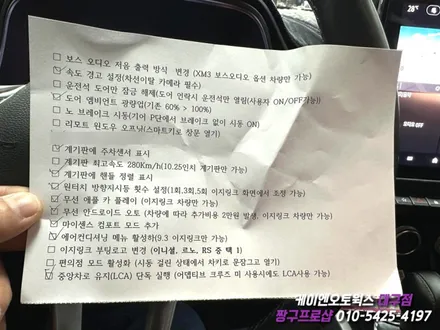 보스 오디오 처음 출력 방식 변경 (XM3 보스오디오 옵션 차량만 가능)
속도 경고 설정(차선이탈 카메라 필수)
운전석 도어만 잠금 해제(도어 언락시 운전석만 열림(사용자 ON/OFF가능))
도어 엠비언트 광량업(기존 60% > 100%)
노 브레이크 시동(기어 P단에서 브레이크 없이 시동 ON)
리모트 윈도우 오프닝(스마트키로 창문 열기)
계기판에 주차센서 표시
계기판 최고속도 280Km/h(10.25인치 계기판만 가능)
계기판에 핸들 정렬 표시
원터치 방향지시등 횟수 설정(1회,3회,5회 이지링크 화면에서 조정 가능)
무선 애플 카 플레이 (이지링크 차량만 가능)
무선 안드로이드 오토 (차량에 따라 추가비용 2만원 발생, 이지링크 차량만 가능)
마이센스 컴포트 모드 추가
에어컨디셔닝 메뉴 활성하(9.3 이지링크만 가능)
이지링크 부팅로고 변경 (이니셜, 르노, RS 중 택 1)
편의점 모드 활성화 (시동 걸린 상태에서 차키로 문잠그고 외출)
중앙차로 유지(LCA) 단독 실행 (어댑티브 크루즈 미 사용시에도 LCA사용 가능)
28°C
케이엔오토웍스 대구점
짱구프로샵 010-5425-4197